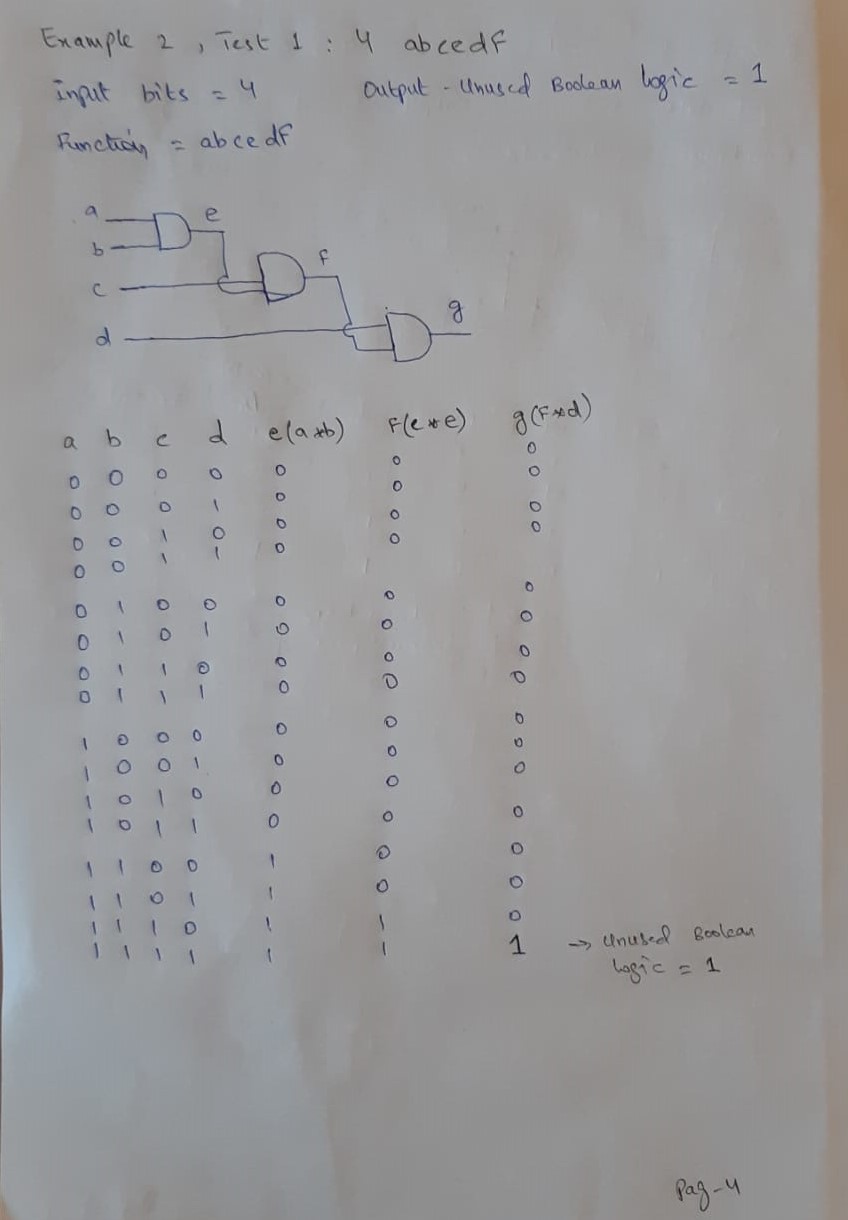 Example 2, Test 1 : 4 abcedf
input bits = 4 Output - Unused Boolean logic = 1
Function = abcedf
a e
b
f
c
g
d
a b c d e(a*b) f(c*e) g(f*d)
0 0 0 0 0 0 0
0 0 0 1 0 0 0
0 0 1 0 0 0 0
0 0 1 1 0 0 0
0 1 0 0 0 0 0
0 1 0 1 0 0 0
0 1 1 0 0 0 0
0 1 1 1 0 0 0
1 0 0 0 0 0 0
1 0 0 1 0 0 0
1 0 1 0 0 0 0
1 0 1 1 0 0 0
1 1 0 0 1 0 0
1 1 0 1 1 0 0
1 1 1 0 1 1 0
1 1 1 1 1 1 1 → Unused Boolean
logic = 1
Pag-4